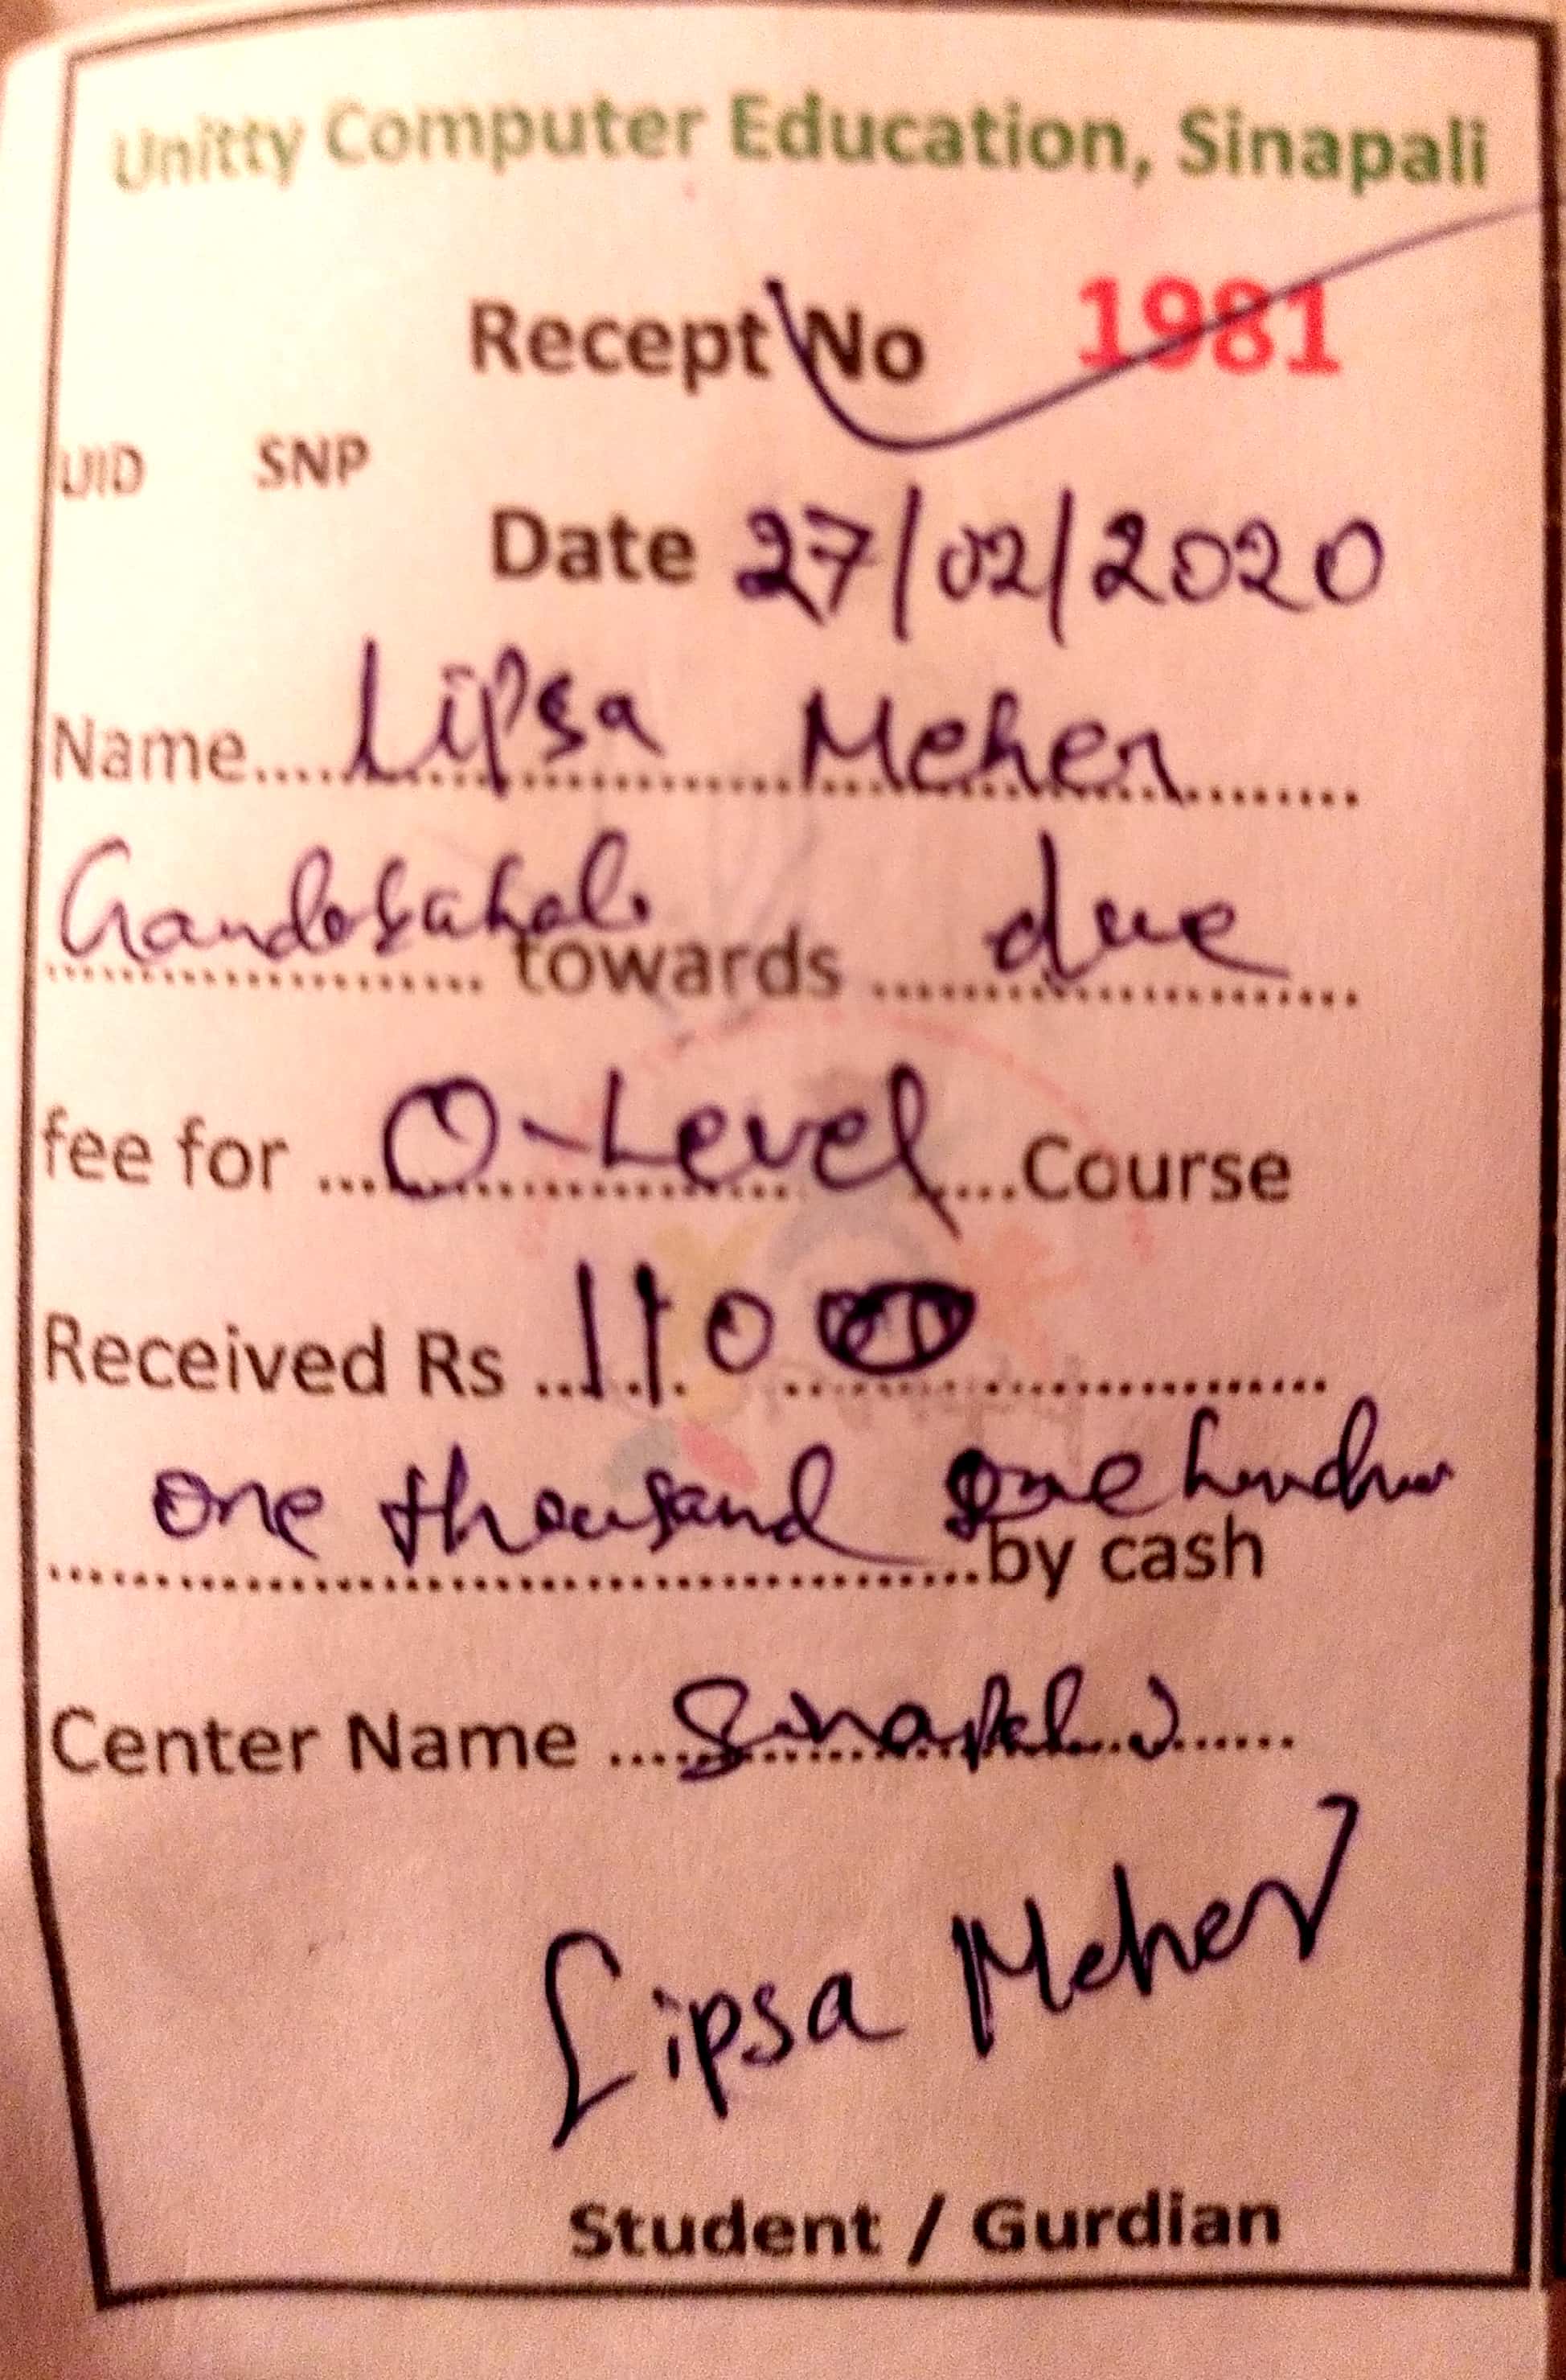 Unitty Computer Education, Sinapali
Recept No 1981
UID SNP
Date 27/02/2020
Name.... Lipsa Meher ........
................ towards ..... due .....
fee for ... O-Level ....Course
Received Rs ... 1100 ................
one thousand one
....................................by cash
Center Name .... Sinapali ......
Lipsa Meher
Student / Gurdian